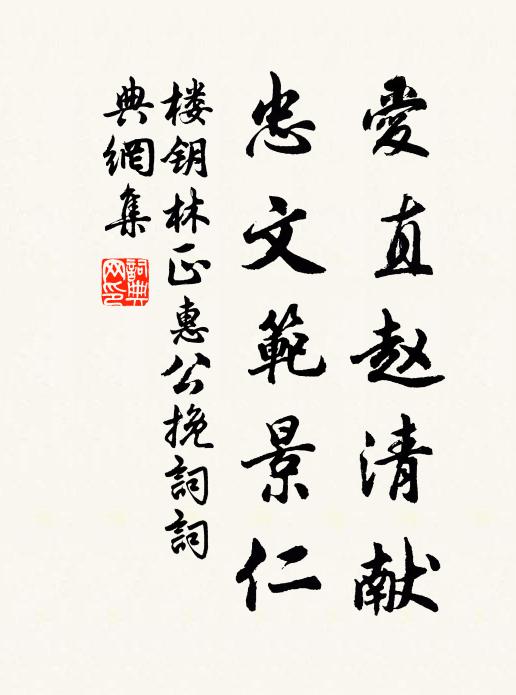 愛直赵清献
忠文範景仁
楼钥林正惠公挽詞詞
典網集
詞典網印